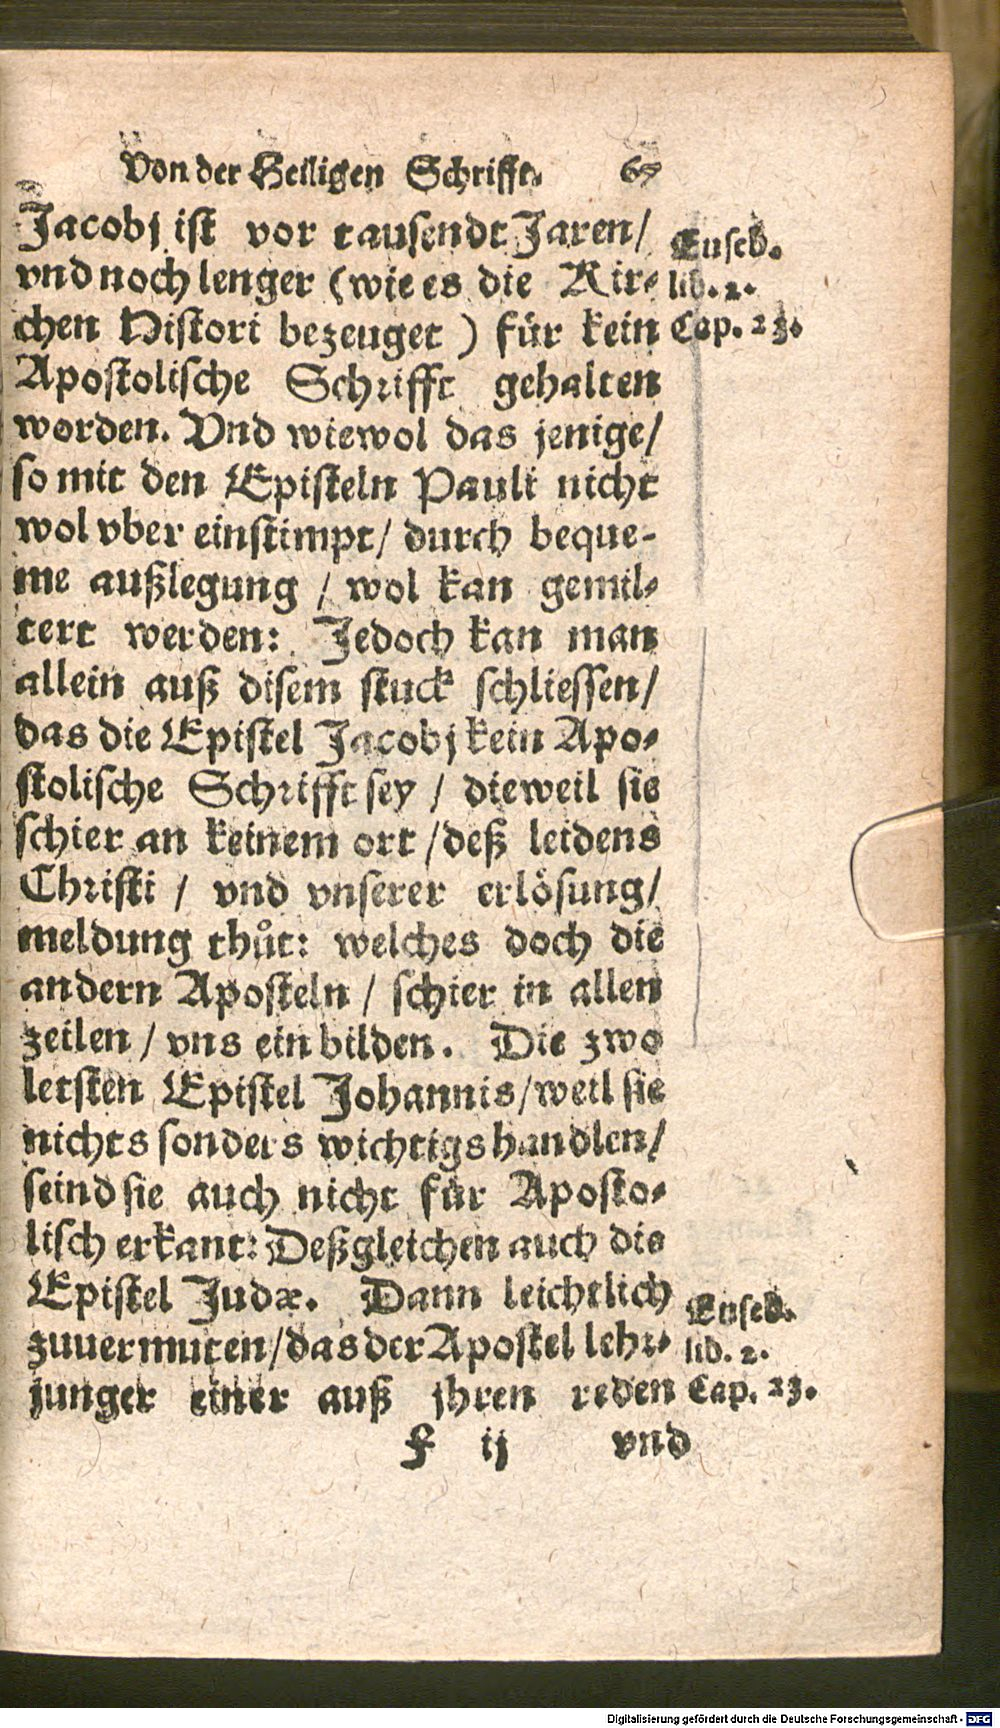 Von der Heiligen Schrifft. 67
Jacobj ist vor tausendt Jaren/
vnd noch lenger (wie es die Kir-
chen Histori bezeuget) für kein
Apostolische Schrifft gehalten
worden. Vnd wiewol das jenige/
so mit den Episteln Pauli nicht
wol vber einstimpt/ durch beque-
me außlegung / wol kan gemil-
tert werden: Jedoch kan man
allein auß disem stuck schliessen/
das die Epistel Jacobj kein Apo-
stolische Schrifft sey / dieweil sie
schier an keinem ort /deß leidens
Christi / vnd vnserer erlösung/
meldung thůt: welches doch die
andern Aposteln / schier in allen
zeilen / vns ein bilden. Die zwo
letsten Epistel Johannis/weil sie
nichts sonders wichtigs handlen/
seind sie auch nicht für Aposto-
lisch erkant: Deßgleichen auch die
Epistel Judæ. Dann leichtlich
zuuermuten/das der Apostel lehr-
junger einer auß jhren reden
F ij vnd
Euseb.
lib. 2.
Cap. 23.
Euseb.
lib. 2.
Cap. 23.
Digitalisierung gefördert durch die Deutsche Forschungsgemeinschaft - DFG